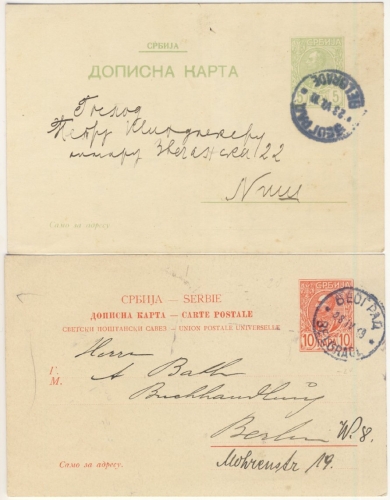 СРБИЈА
ДОПИСНА КАРТА
5 5
БЕОГРАД
BELGRADE
Господ
Петру
22
Ниш
Само за адресу.
СРБИЈА — SERBIE
ДОПИСНА КАРТА — CARTE POSTALE
СВЕТСКИ ПОШТАНСКИ САВЕЗ — UNION POSTALE UNIVERSELLE
СРБИЈА
10 10
БЕОГРАД
BELGRADE
Г.
М.
Herrn
A Bath
Buchhandlung
Berlin W. 8.
Mohrenstr 19.
Само за адресу.